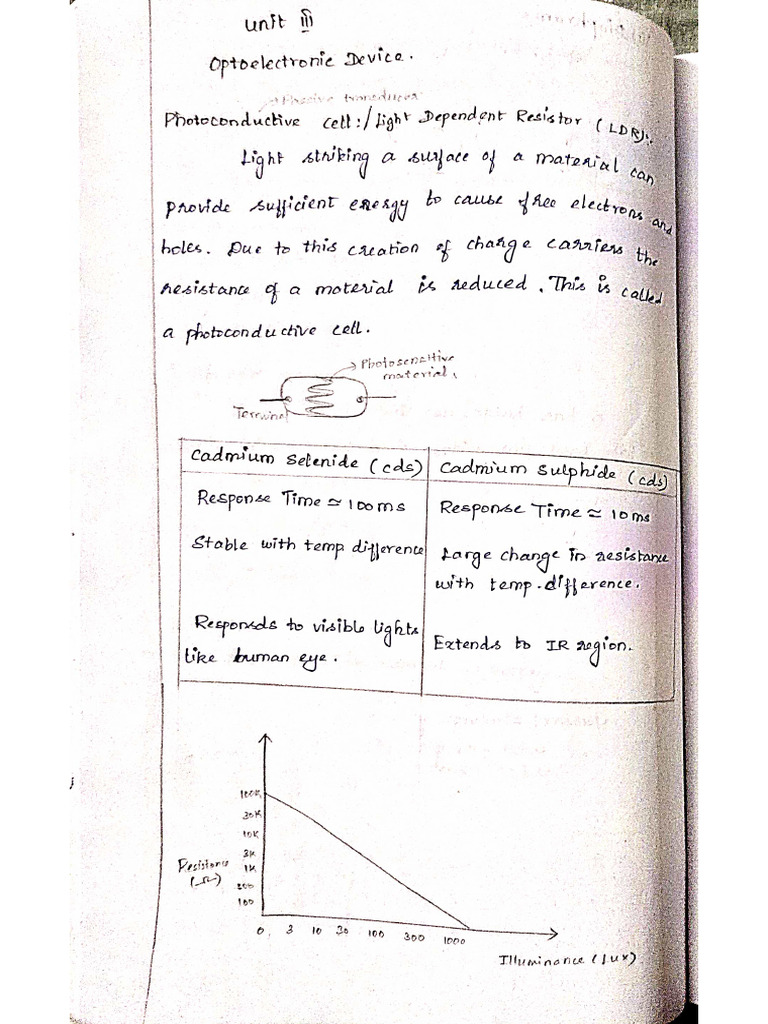 Unit III
Optoelectronic Device.
Passive transducer
Photoconductive cell:/Light Dependent Resistor (LDR):
Light striking a surface of a material can
provide sufficient energy to cause free electrons and
holes. Due to this creation of charge carriers the
resistance of a material is reduced. This is called
a photoconductive cell.
Photosensitive
material.
Terminal
Cadmium Selenide (cds)
Cadmium Sulphide (cds)
Response Time ≃ 100ms
Response Time ≃ 10ms
Stable with temp difference
Large change in resistance
with temp. difference.
Responsds to visible lights
like human eye.
Extends to IR region.
100K
30K
10K
3K
1K
200
100
Resistance
(Ω)
0 3 10 30 100 300 1000
Illuminance (lux)